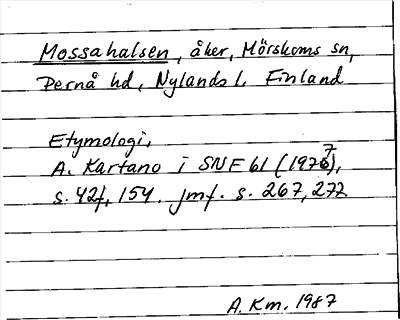 Mossahalsen, åker, Mörskoms sn,
Pernå hd, Nylands l. Finland
Etymologi,
A. Kartano i SNF 61 (1977),
s. 42f, 154. jmf. s. 267, 277
A. Km. 1987